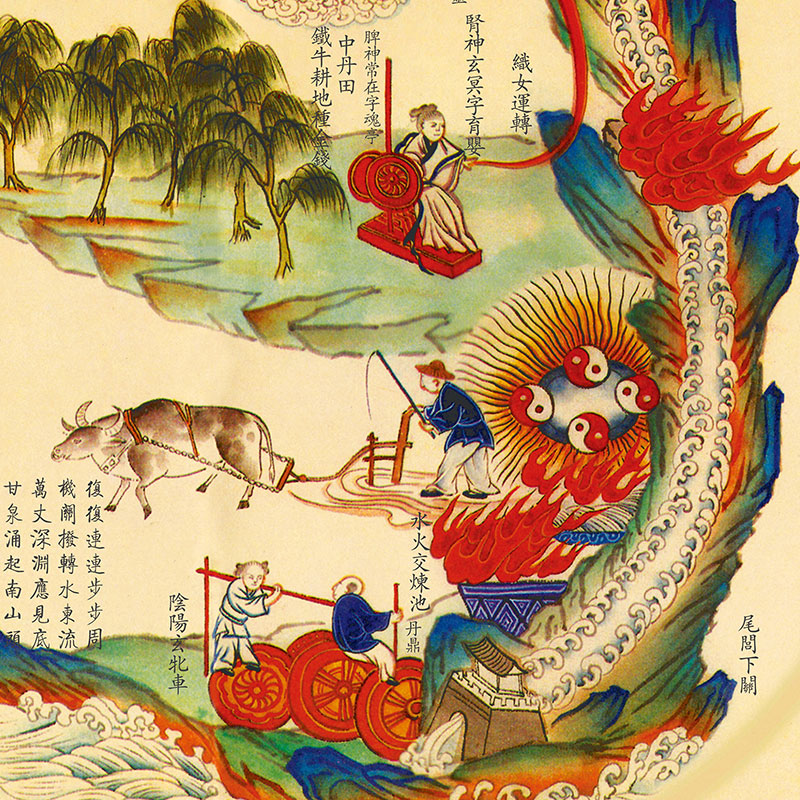 織女運轉
腎神玄冥字育嬰
脾神常在字魂亭
中丹田
鐵牛耕地種金錢
復復連連步步周
機關撥轉水東流
萬丈深淵應見底
甘泉涌起南山頭
水火交煉池
丹鼎
陰陽玄牝車
尾閭下關